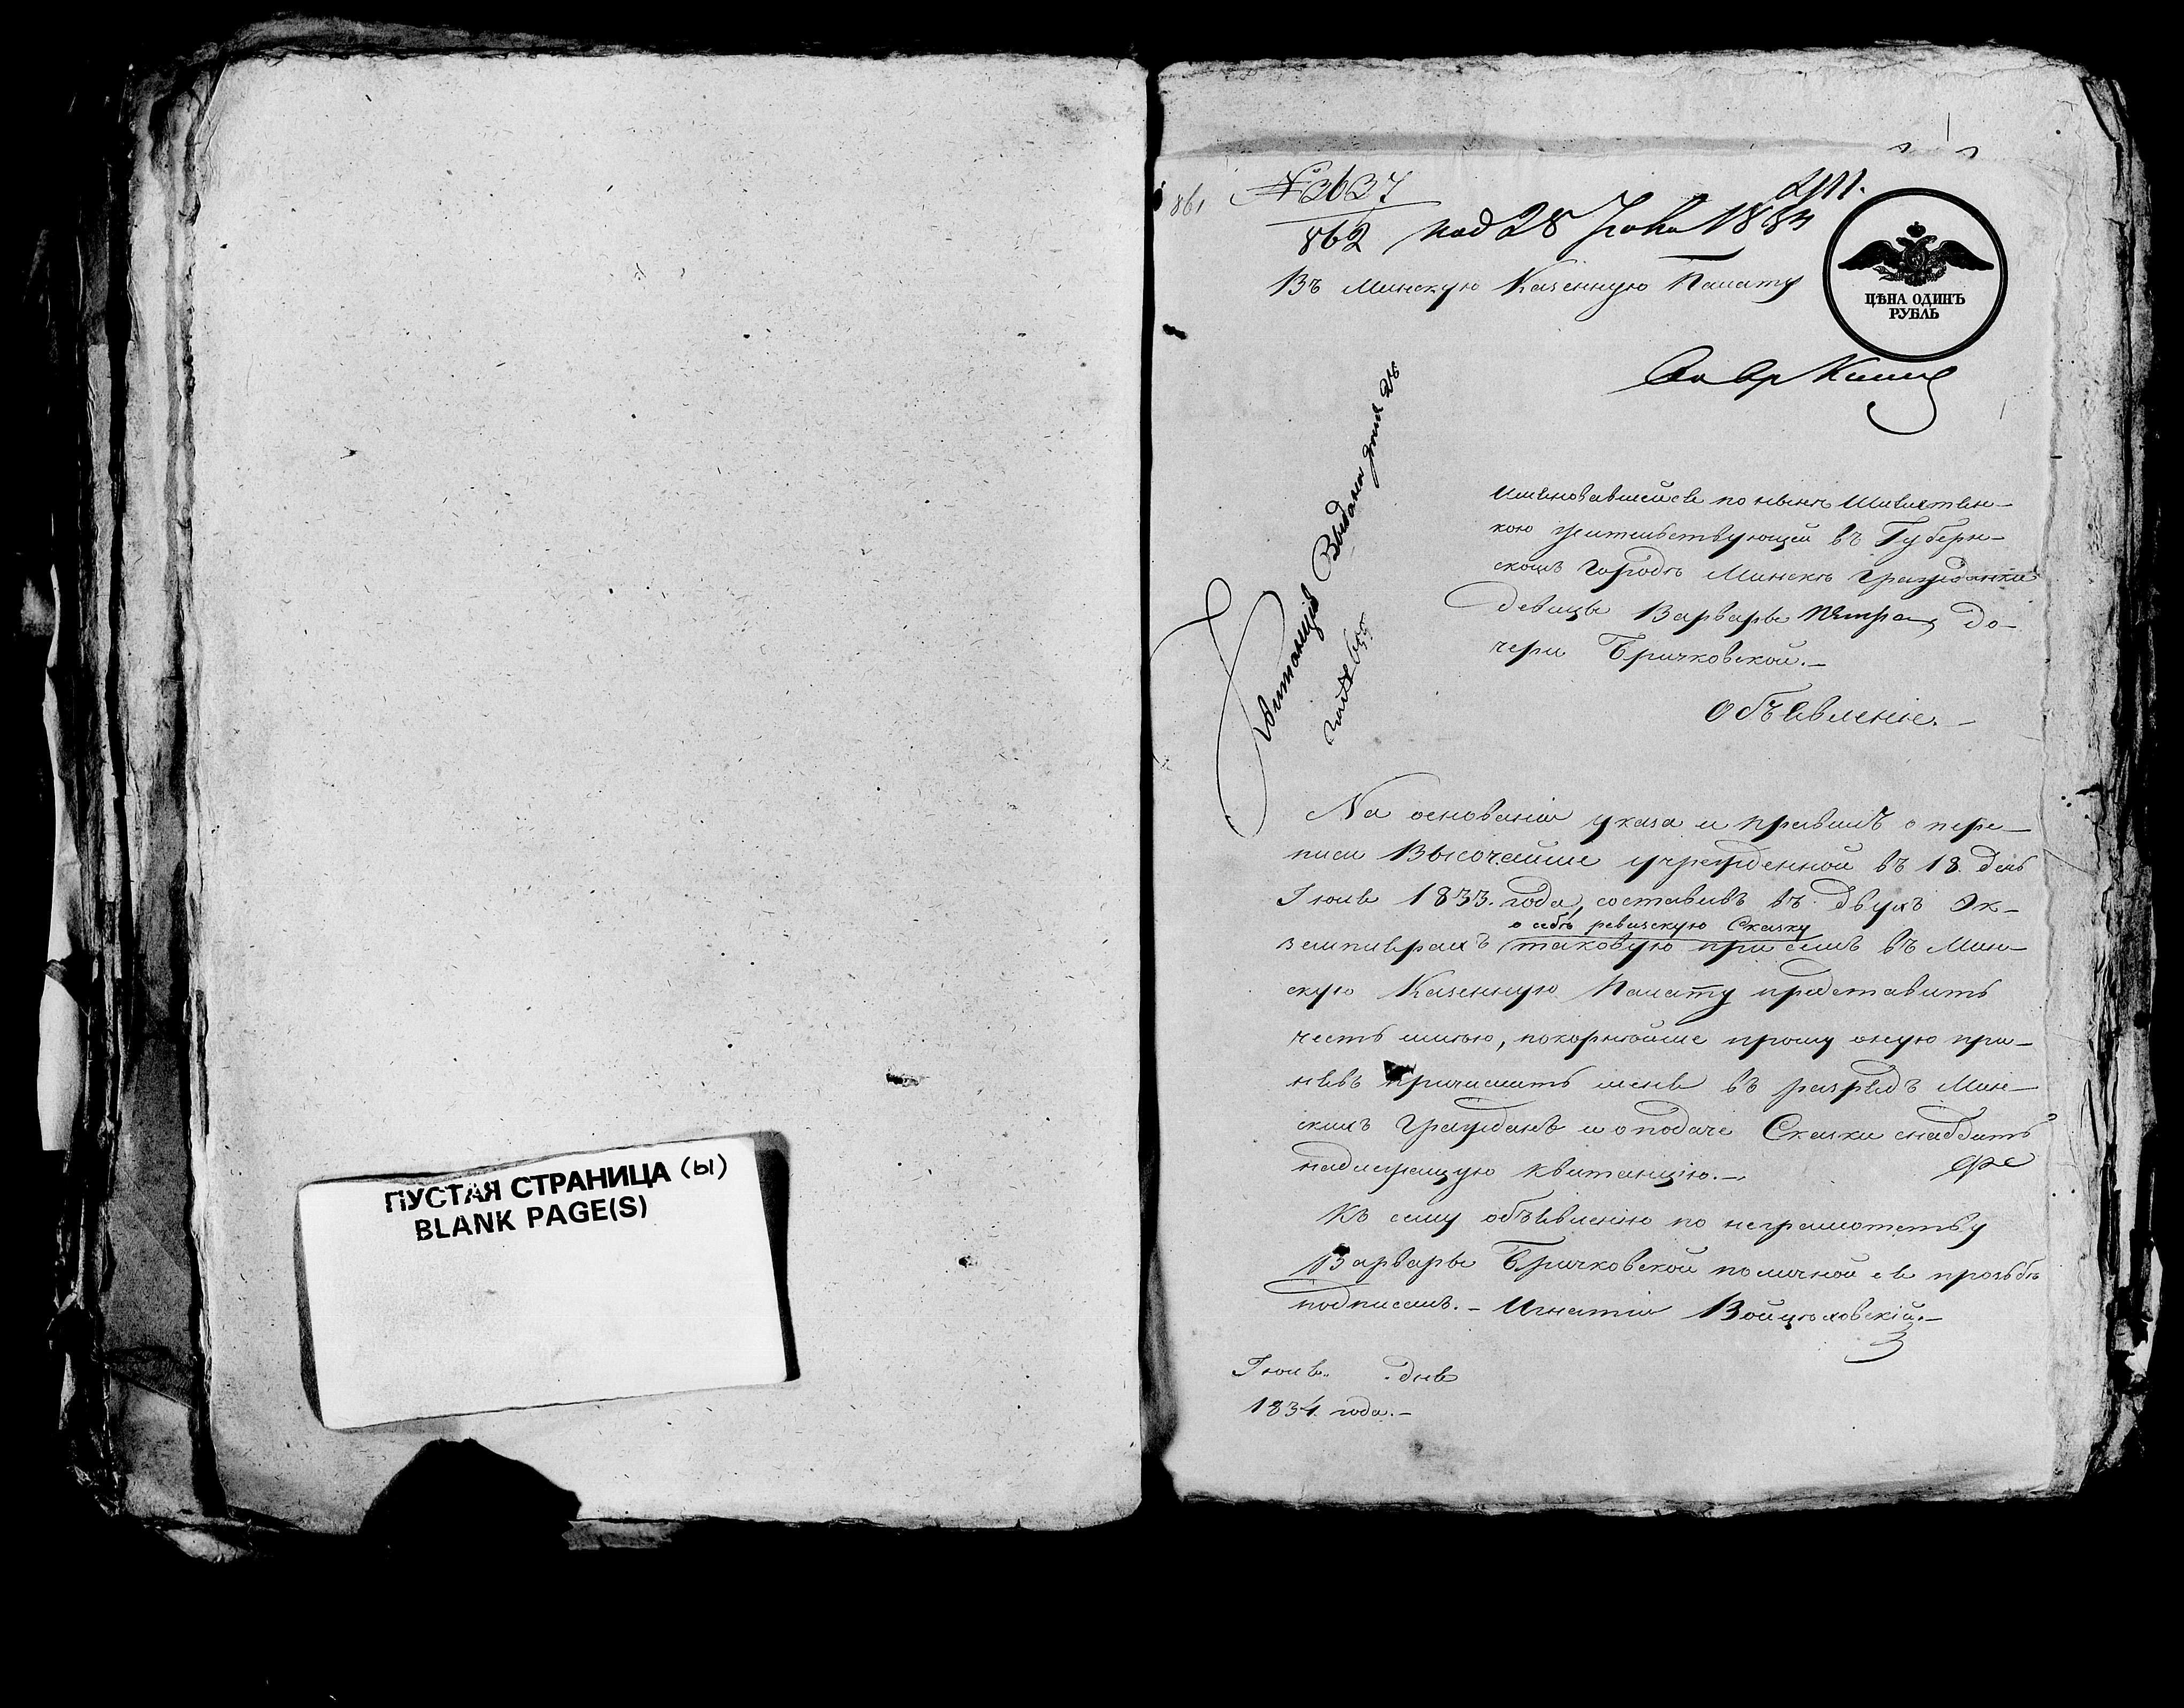 ПУСТАЯ СТРАНИЦА (Ы)
BLANK PAGE(S)
861
№ 2627
862 под 28 Июля 1834
Въ Минскую Казенную Палату
ЦѢНА ОДИНЪ
РУБЛЬ
Именовавшейся по нынѣ Шляхтян-
кою жительствующей въ Губерн-
скомъ городѣ Минскѣ гражданки
девицы Варвары Петра до-
чери Бричковской.—
Объявленіе.—
Квитанція Выдана
На основаніи указа и правилъ о пере-
писи Высочайше учрежденной въ 18 день
Іюня 1833. года, составивъ въ двухъ Эк-
о себѣ ревизскую Сказку
земплярахъ таковую при семъ въ Мин-
скую Казенную Палату представить
честь имѣю, покорнѣйше прошу оную при-
нявъ причислить меня въ разрядъ Мин-
скихъ Гражданъ и о подаче Сказки снабдить
надлежащую квитанцію.—
Къ сему объявленію по неграмотству
Варвары Бричковской по личной ея прозьбѣ
подписалъ.— Игнатій Войцѣховскій.—
Іюля .. дня
1834 года.—